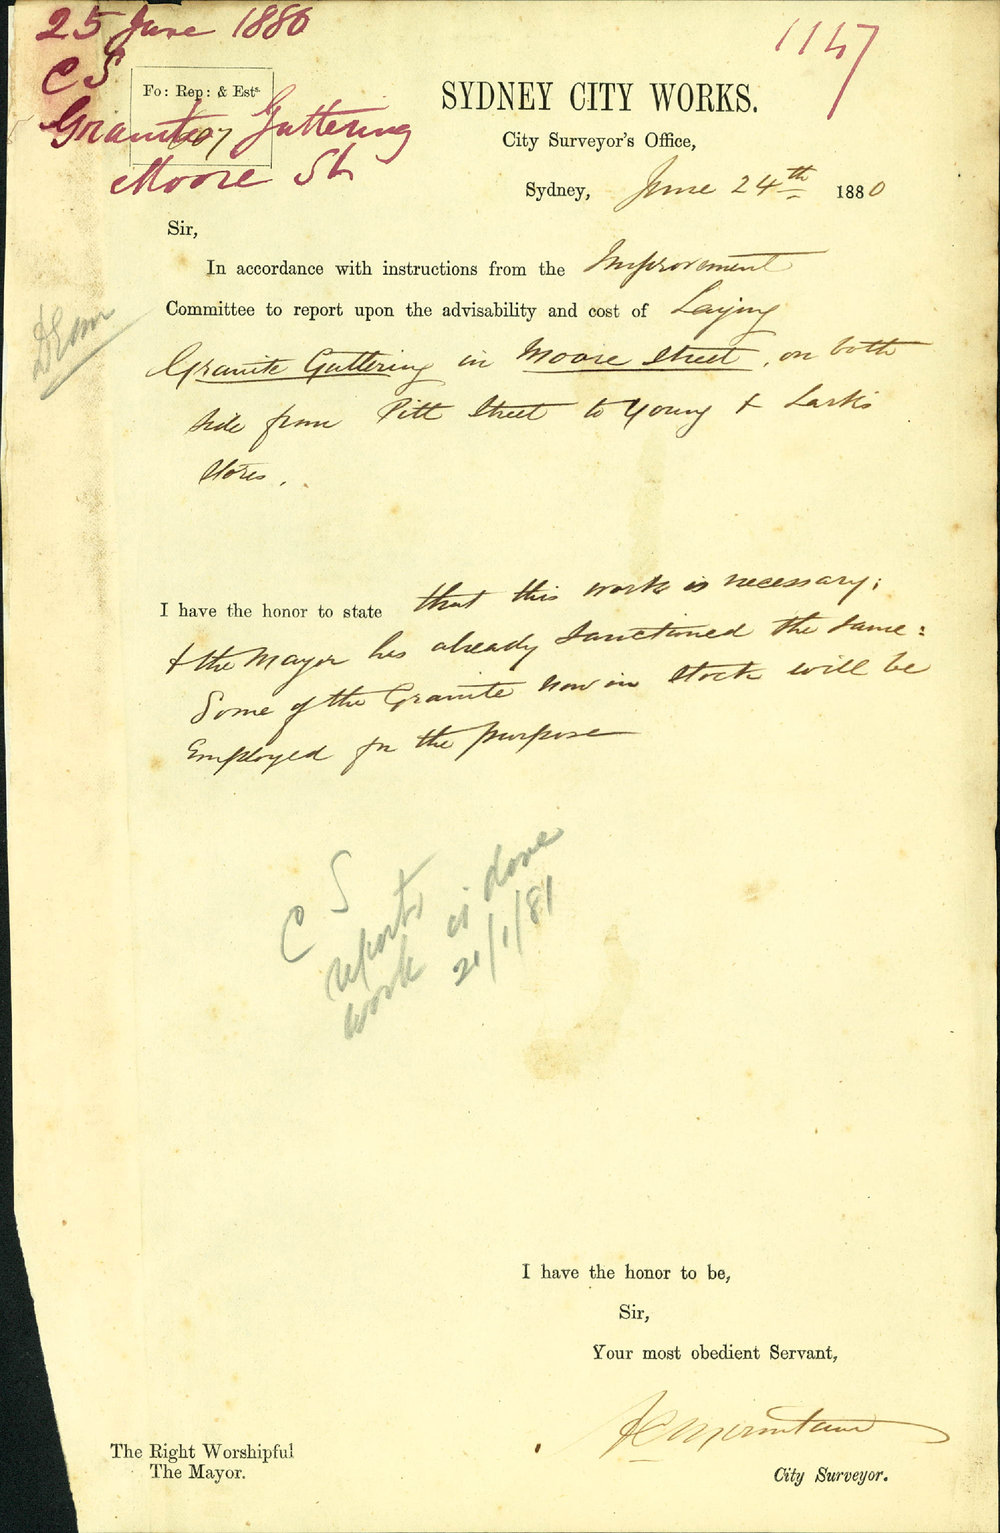 25 June 1880
1147
C S
Fo: Rep: & Ests.
607
Granite Guttering
Moore St
SYDNEY CITY WORKS.
City Surveyor's Office,
Sydney, June 24th 1880
Sir,
In accordance with instructions from the Improvement
Committee to report upon the advisability and cost of Laying
Granite Guttering in Moore Street, on both
side from Pitt Street to Young & Lark's
Stores.
I have the honor to state that this work is necessary;
& the Mayor has already Sanctioned the same:
Some of the Granite now in Stock will be
Employed for the purpose
C S
reports
work is done
21/1/81
I have the honor to be,
Sir,
Your most obedient Servant,
City Surveyor.
The Right Worshipful
The Mayor.